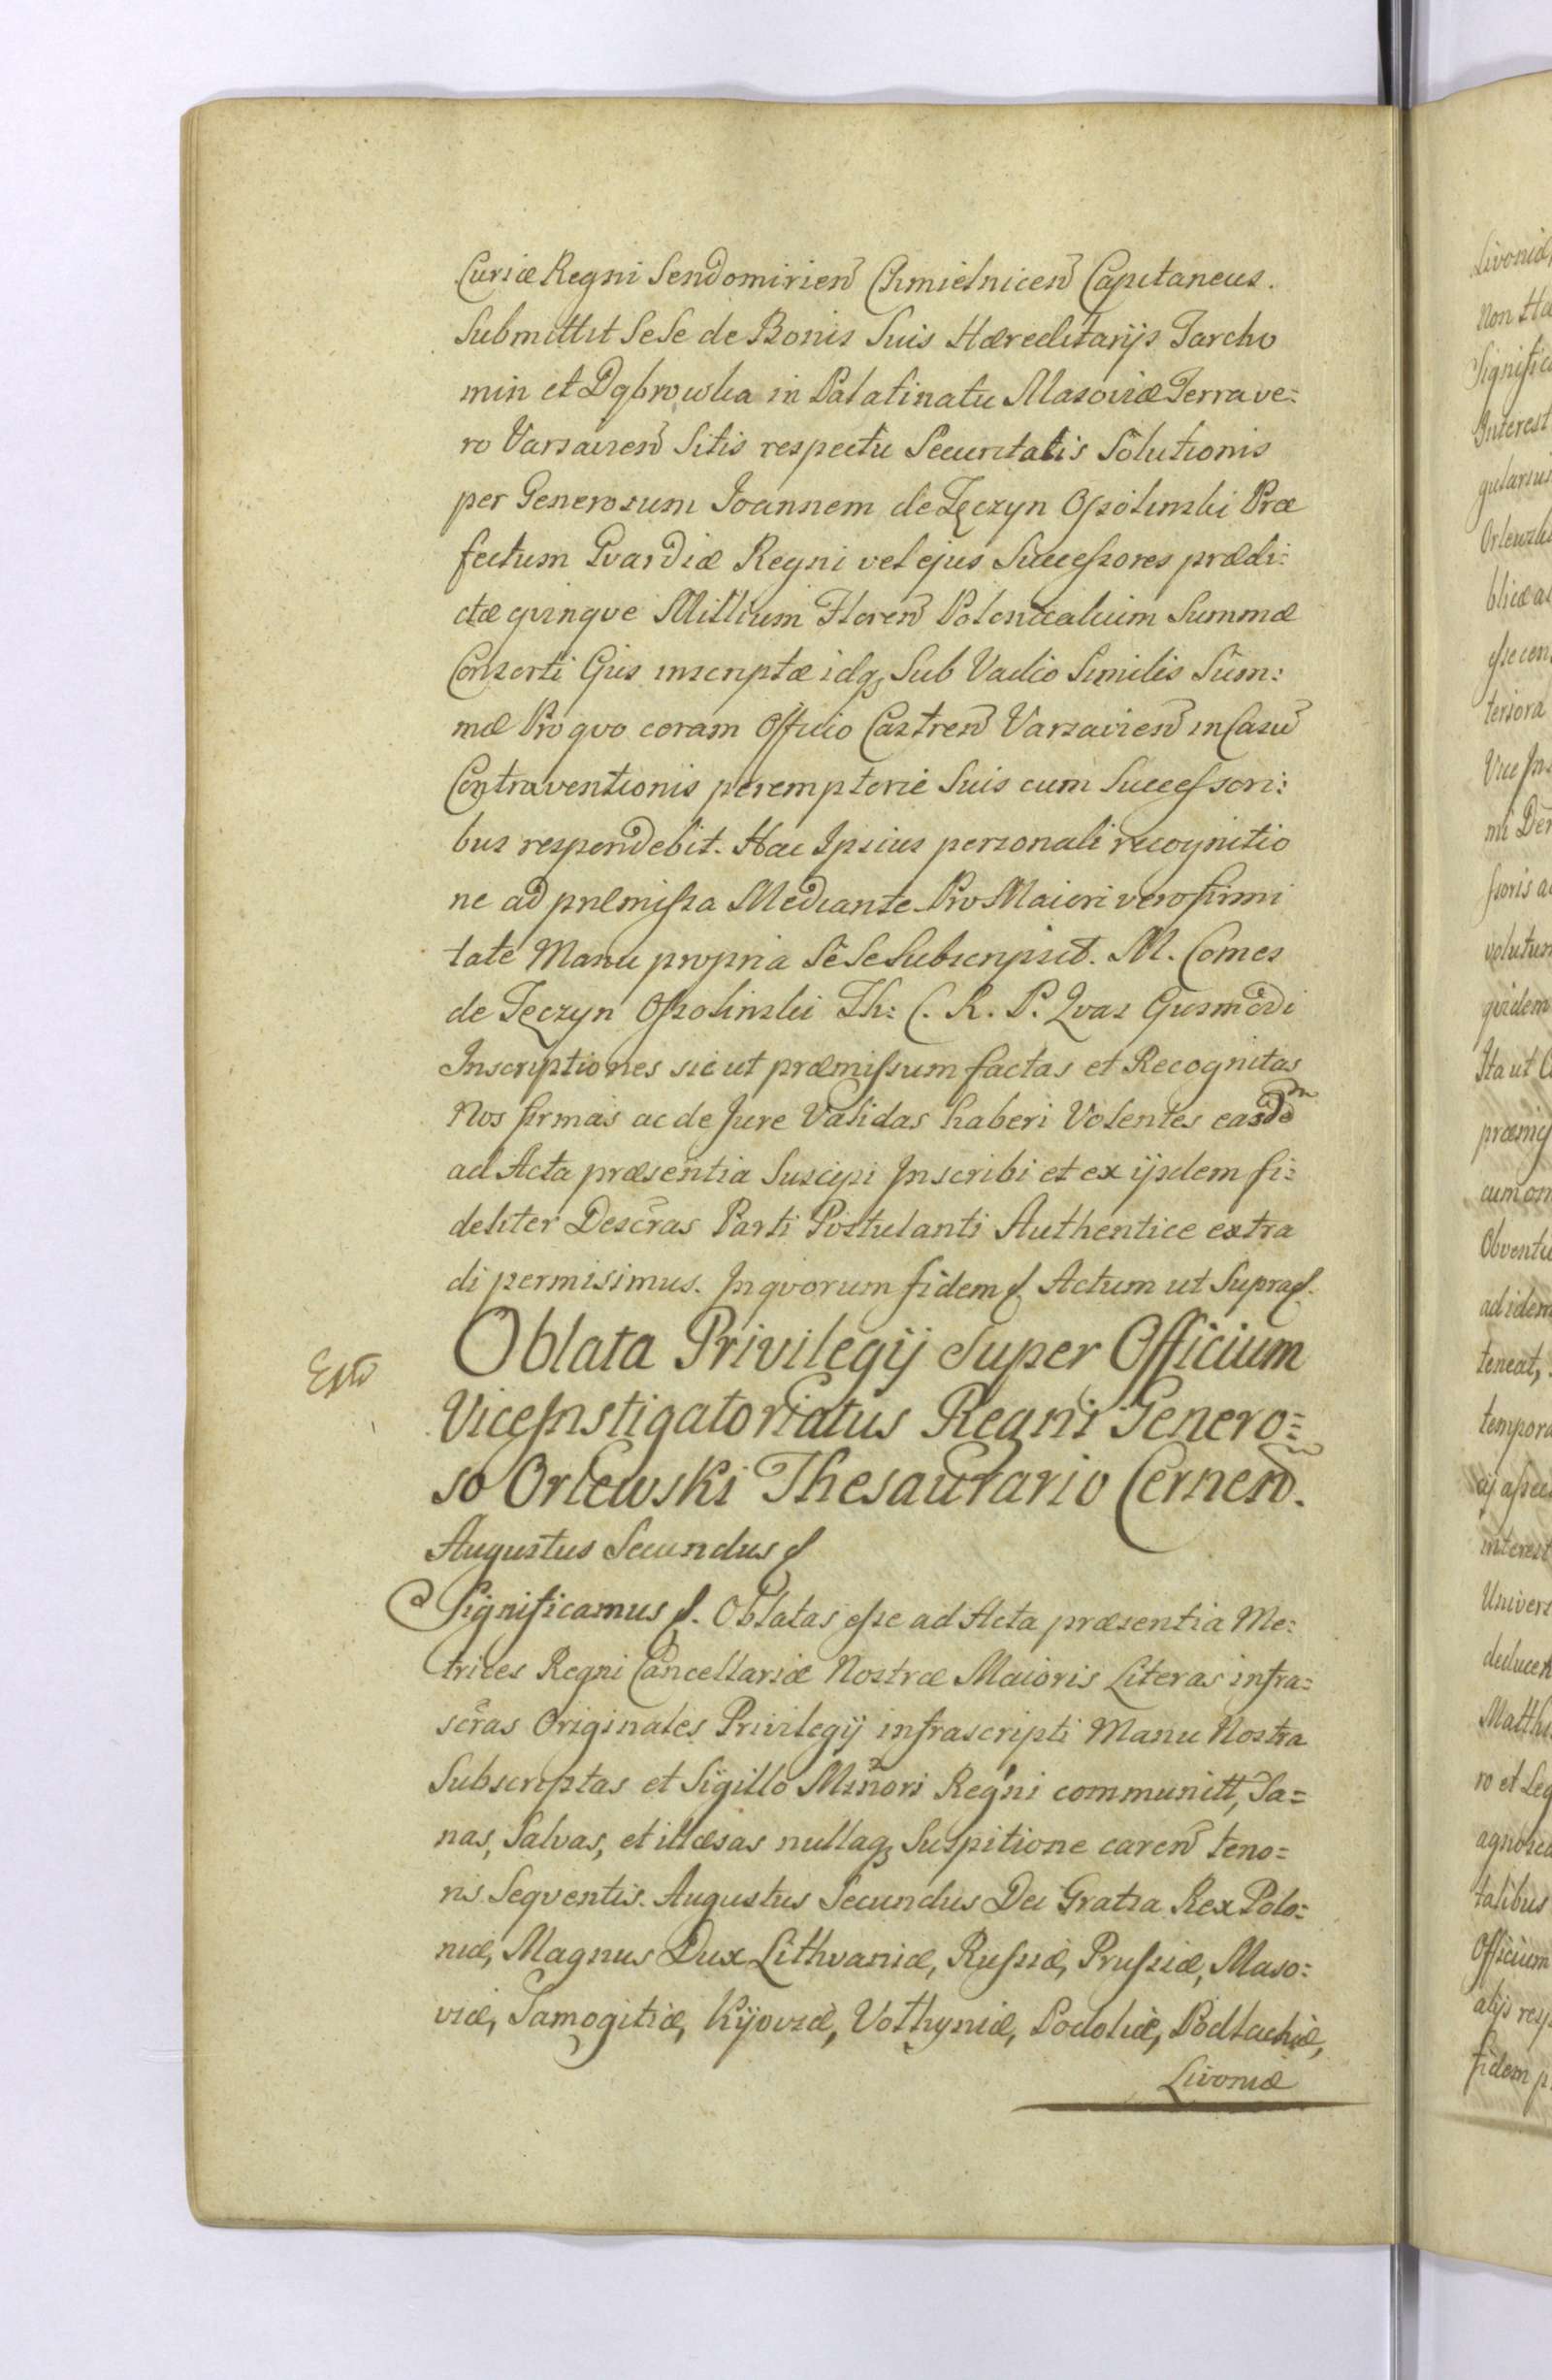 Curiæ Regni Sendomirien̄ Chmielnicen̄ Capitaneus.
Submittit Sese de Bonis Suis Hæreditarijs Tarcho
min et Dąbrowka in Palatinatu Masoviæ Terra ve:
ro Varsavien̄ Sitis respectu Securitatis Solutionis
per Generosum Joannem de Tęczyn Ossolinski Præ
fectum Gvardiæ Regni vel ejus Successores prædi:
ctæ qvinqve Millium Floren̄ Polonicalium Summæ
Consorti Ejus inscriptæ idq3 Sub Vadio Similis Sum:
mæ Pro qvo coram Officio Castren̄ Varsavien̄ in Casu
Contraventionis peremptorie Suis cum Successori:
bus respondebit. Hac Ipsius personali recognitio
ne ad præmissa Mediante Pro Maiori vero firmi
tate Manu propria Sese Subscripsit. M. Comes
de Tęczyn Ossolinski Th: C. R. P. Qvas Eiusmodi
Inscriptiones sic ut præmissum factas et Recognitas
Nos firmas ac de Jure Validas haberi Volentes easdem
ad Acta præsentia Suscipi Inscribi et ex ijsdem fi:
deliter Descr̄as Parti Postulanti Authentice extra
di permisimus. In qvorum fidem &. Actum ut Supra &.
Oblata Privilegij Super Officium
ViceInstigatoriatus Regni Genero=
so Orlewski Thesaurario Cernen̄.
Augustus Secundus &
Significamus &. Oblatas esse ad Acta præsentia Me:
trices Regni Cancellariæ Nostræ Maioris Literas infra=
scr̄as Originales Privilegij infrascripti Manu Nostra
Subscriptas et Sigillo Minori Regni communitt, Sa=
nas, Salvas, et illæsas nullaq3 Suspitione caren̄ teno=
ris Seqventis. Augustus Secundus Dei Gratia Rex Polo:
niæ, Magnus Dux Lithvaniæ, Russiæ, Prussiæ, Maso:
viæ, Samogitiæ, Kijoviæ, Volhyniæ, Podoliæ, Podlachiæ,
Livoniæ